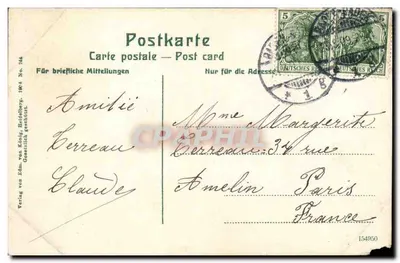 Postkarte
Carte postale — Post card
Für briefliche Mitteilungen
Nur für die Adresse
Amitié
Terreau
Claude
Mme Margerite
Terreau 34 rue
Amelin Paris
France
5
5
DEUTSCHES
Verlag von Edm. von König, Heidelberg.
Gesetzlich geschützt.
154950